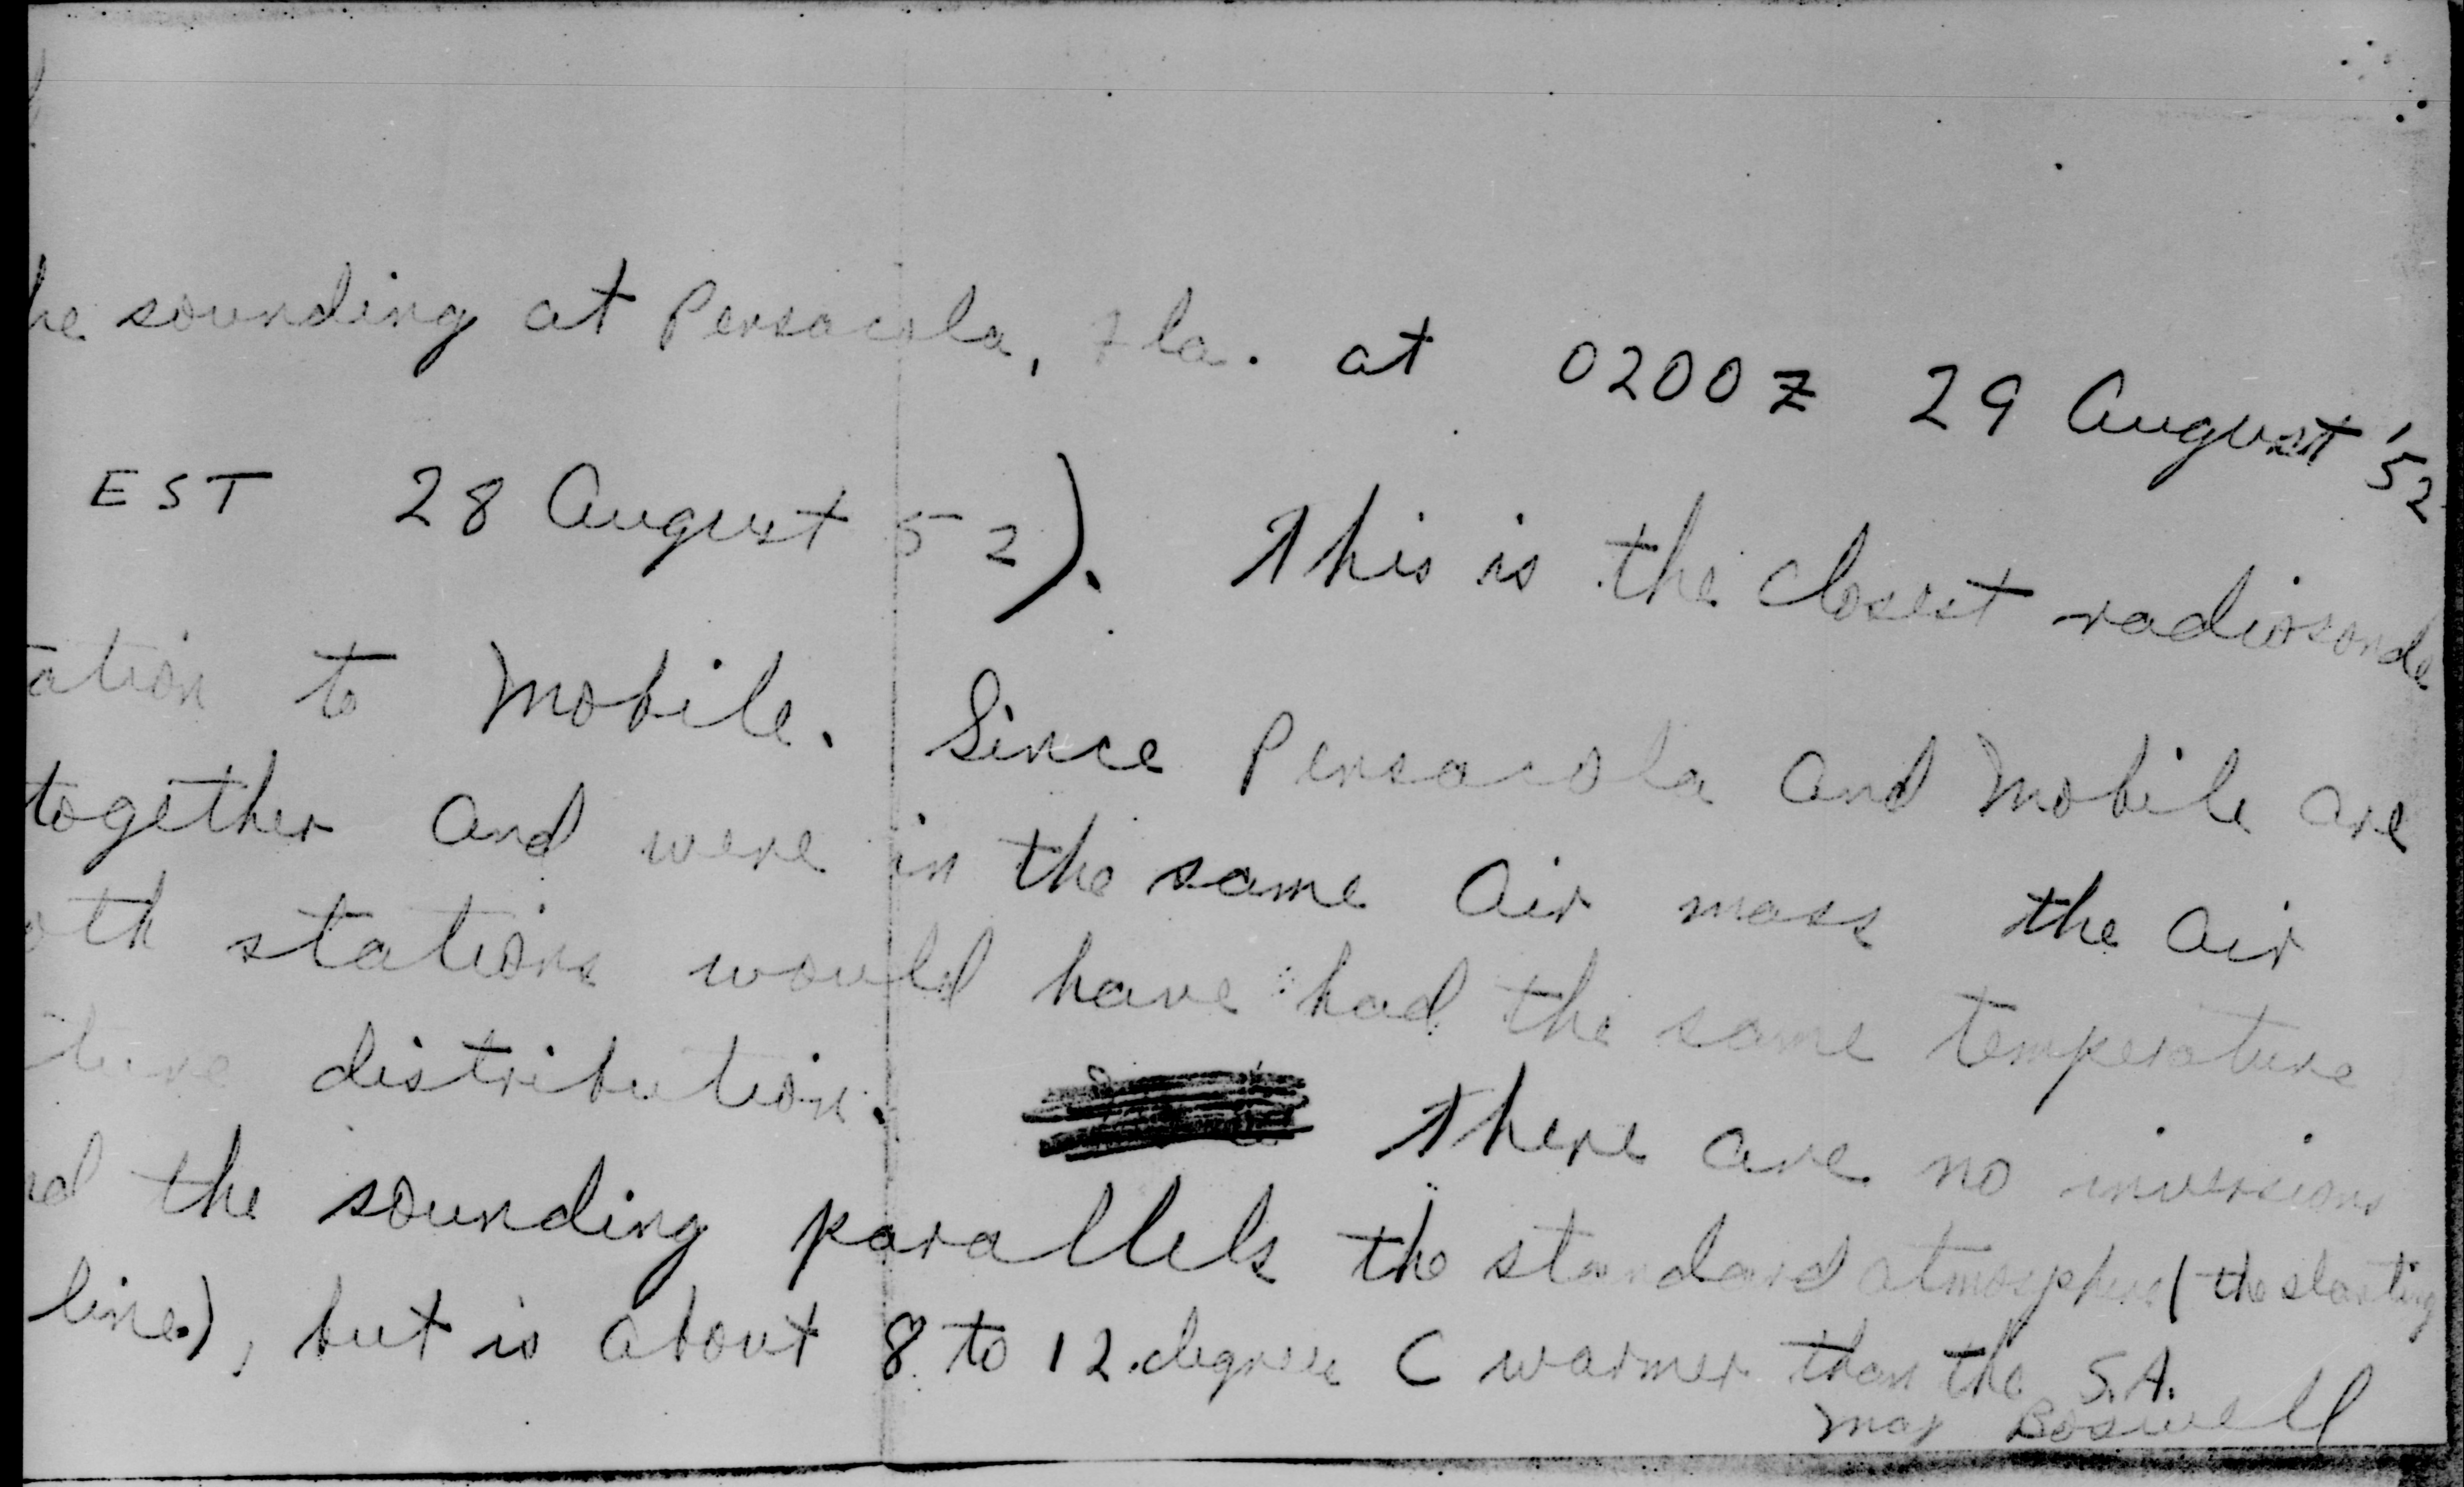 he sounding at Pensacola, Fla. at 0200Z 29 August '52
EST 28 August 52). This is the closest radiosonde
ation to Mobile. Since Pensacola and Mobile are
together and were in the same air mass the air
oth stations would have had the same temperature
ture distribution. There are no inversions
nd the sounding parallels the standard atmosphere (the slanting
line), but is about 8 to 12 degrees C warmer than the S.A.
Maj Boswell